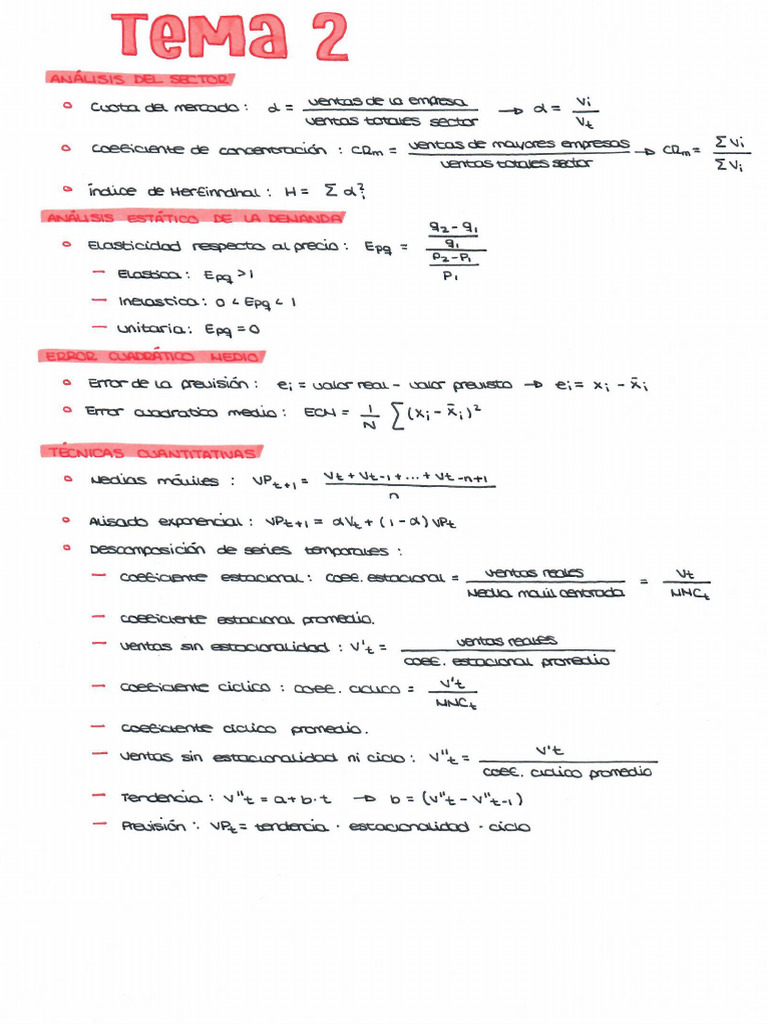 Tema 2
ANÁLISIS DEL SECTOR
○ Cuota del mercado: α = ventas de la empresa / ventas totales sector → α = Vi / Vt
○ Coeficiente de concentración: CRm = ventas de mayores empresas / ventas totales sector → CRm = Σ Vi / Σ Vi
○ Índice de Herfinndhal: H = Σ αi²
ANÁLISIS ESTÁTICO DE LA DEMANDA
○ Elasticidad respecto al precio: Epq = ((q2 - q1) / q1) / ((P2 - P1) / P1)
— Elastica: Epq > 1
— Inelastica: 0 < Epq < 1
— Unitaria: Epq = 0
ERROR CUADRÁTICO MEDIO
○ Error de la previsión: ei = valor real - valor previsto → ei = xi - x̄i
○ Error cuadratico medio: ECM = 1/N Σ(xi - x̄i)²
TÉCNICAS CUANTITATIVAS
○ Medias móviles: VPt+1 = (Vt + Vt-1 + ... + Vt-n+1) / n
○ Alisado exponencial: VPt+1 = αVt + (1 - α) VPt
○ Descomposición de series temporales:
— coeficiente estacional: coef. estacional = ventas reales / Media movil centrada = Vt / MMCt
— coeficiente estacional promedio.
— ventas sin estacionalidad: V't = ventas reales / coef. estacional promedio
— coeficiente ciclico: coef. ciclico = V't / MMCt
— coeficiente ciclico promedio.
— ventas sin estacionalidad ni ciclo: V''t = V't / coef. ciclico promedio
— Tendencia: V''t = a + b · t → b = (V''t - V''t-1)
— Previsión: VPt = tendencia · estacionalidad · ciclo